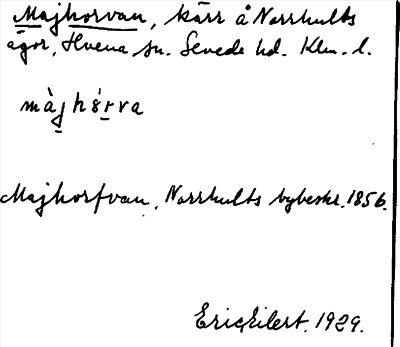 Majhorvan, kärr å Norrhults
ägor, Hvena sn. Sevede hd. Klm. l.
màjhórva
Majhorfvan, Norrhults bybeskr. 1856.
Eric Eilert. 1929.